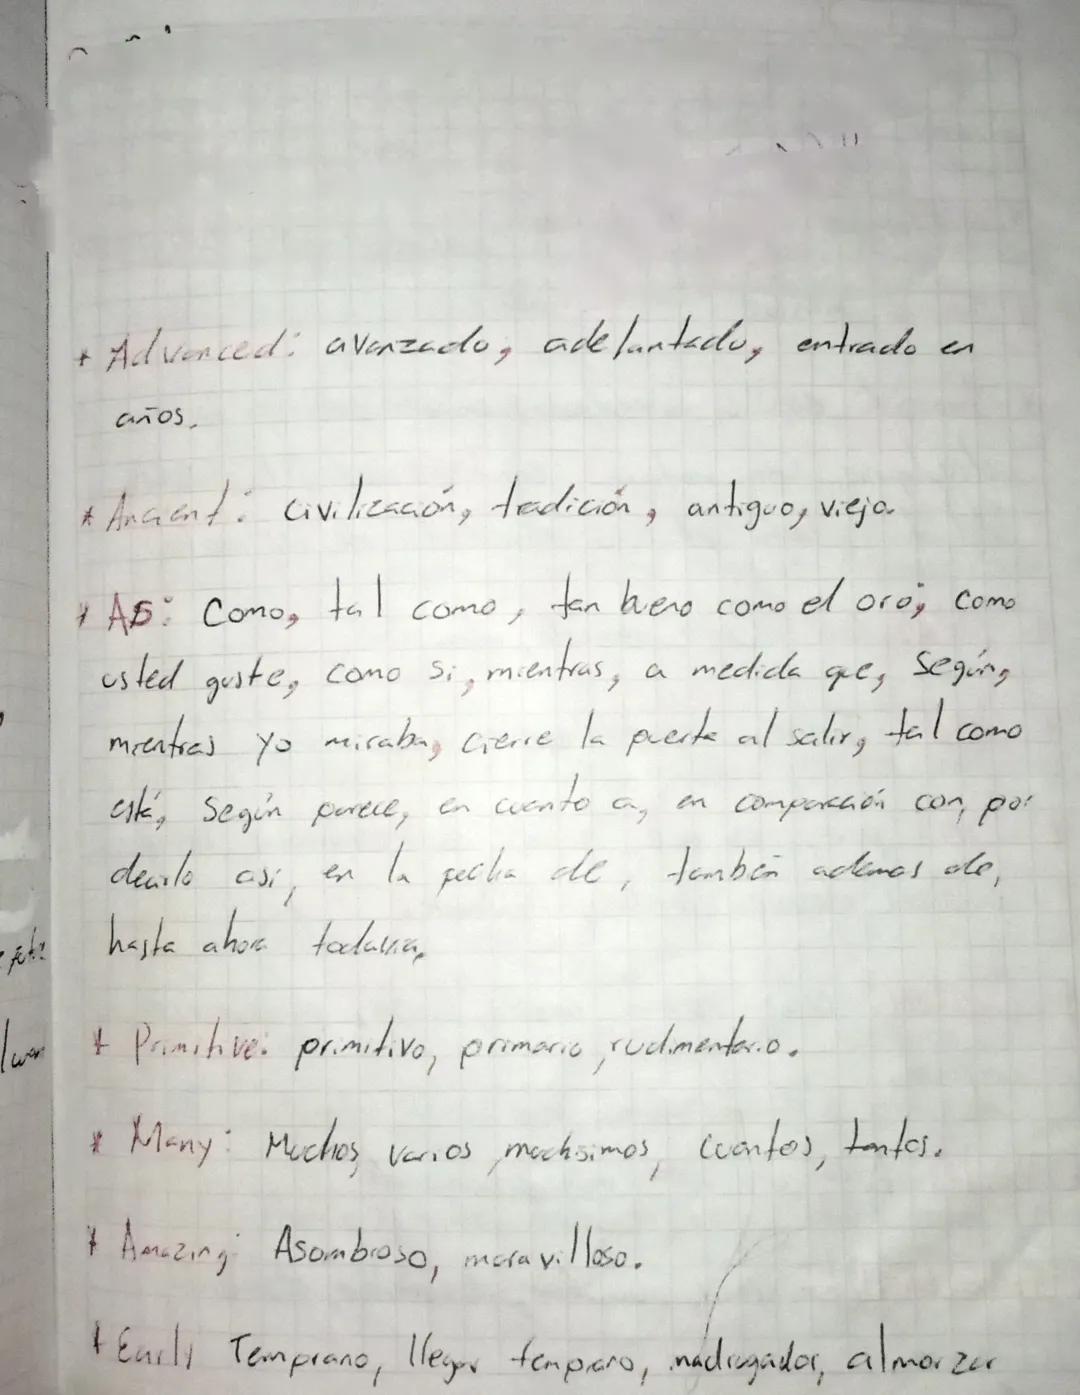 * Advanced: avanzado, adelantado, entrado en
años.
* Ancient: civilización, tradición, antiguo, viejo.
* AS: Como, tal como, tan bueno como el oro, como
usted guste, como si, mientras, a medida que, Según,
mientras yo miraba, cierre la puerta al salir, tal como
está, Según parece, en cuanto a, en comparación con, por
decirlo asi, en la fecha de, también ademas de,
hasta ahora todavia,
* Primitive: primitivo, primario, rudimentario.
* Many: Muchos, varios, muchisimos, cuantos, tantos.
* Amazing: Asombroso, maravilloso.
* Early Temprano, llegar temprano, madrugador, almorzar